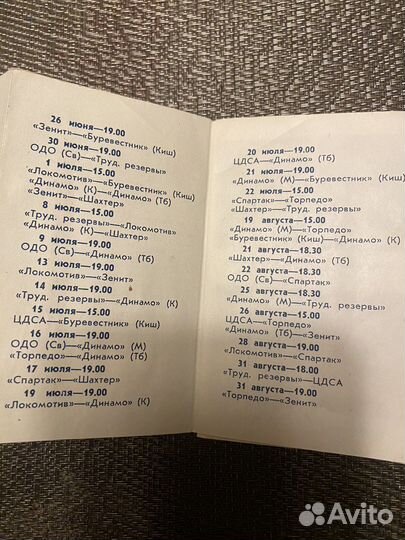 26 июня—19.00
«Зенит»—«Буревестник» (Киш)
30 июня—19.00
ОДО (Св)—«Труд. резервы»
1 июля—15.00
«Локомотив»—«Буревестник» (Киш)
«Динамо» (К)—«Динамо» (Тб)
«Зенит»—«Шахтер»
8 июля—15.00
«Труд. резервы»—«Локомотив»
«Динамо» (К)—«Шахтер»
9 июля—19.00
ОДО (Св)—«Динамо» (Тб)
13 июля—19.00
«Локомотив»—«Зенит»
14 июля—19.00
«Труд. резервы»—«Динамо» (К)
15 июля—19.00
ЦДСА—«Буревестник» (Киш)
16 июля—19.00
ОДО (Св)—«Динамо» (М)
«Торпедо»—«Динамо» (Тб)
17 июля—19.00
«Спартак»—«Шахтер»
19 июля—19.00
«Локомотив»—«Динамо» (К)
20 июля—19.00
ЦДСА—«Динамо» (Тб)
21 июля—19.00
«Динамо» (М)—«Буревестник» (Киш)
22 июля—15.00
«Спартак»—«Торпедо»
«Шахтер»—«Труд. резервы»
19 августа—15.00
«Динамо» (М)—«Торпедо»
«Буревестник» (Киш)—«Динамо» (К)
21 августа—18.30
«Шахтер»—«Динамо» (Тб)
22 августа—18.30
ОДО (Св)—«Спартак»
25 августа—18.30
«Динамо» (М)—«Труд. резервы»
26 августа—15.00
ЦДСА—«Торпедо»
«Динамо» (Тб)—«Зенит»
28 августа—19.00
«Локомотив»—«Спартак»
31 августа—18.00
«Труд. резервы»—ЦДСА
31 августа—19.00
«Торпедо»—«Зенит»
Avito